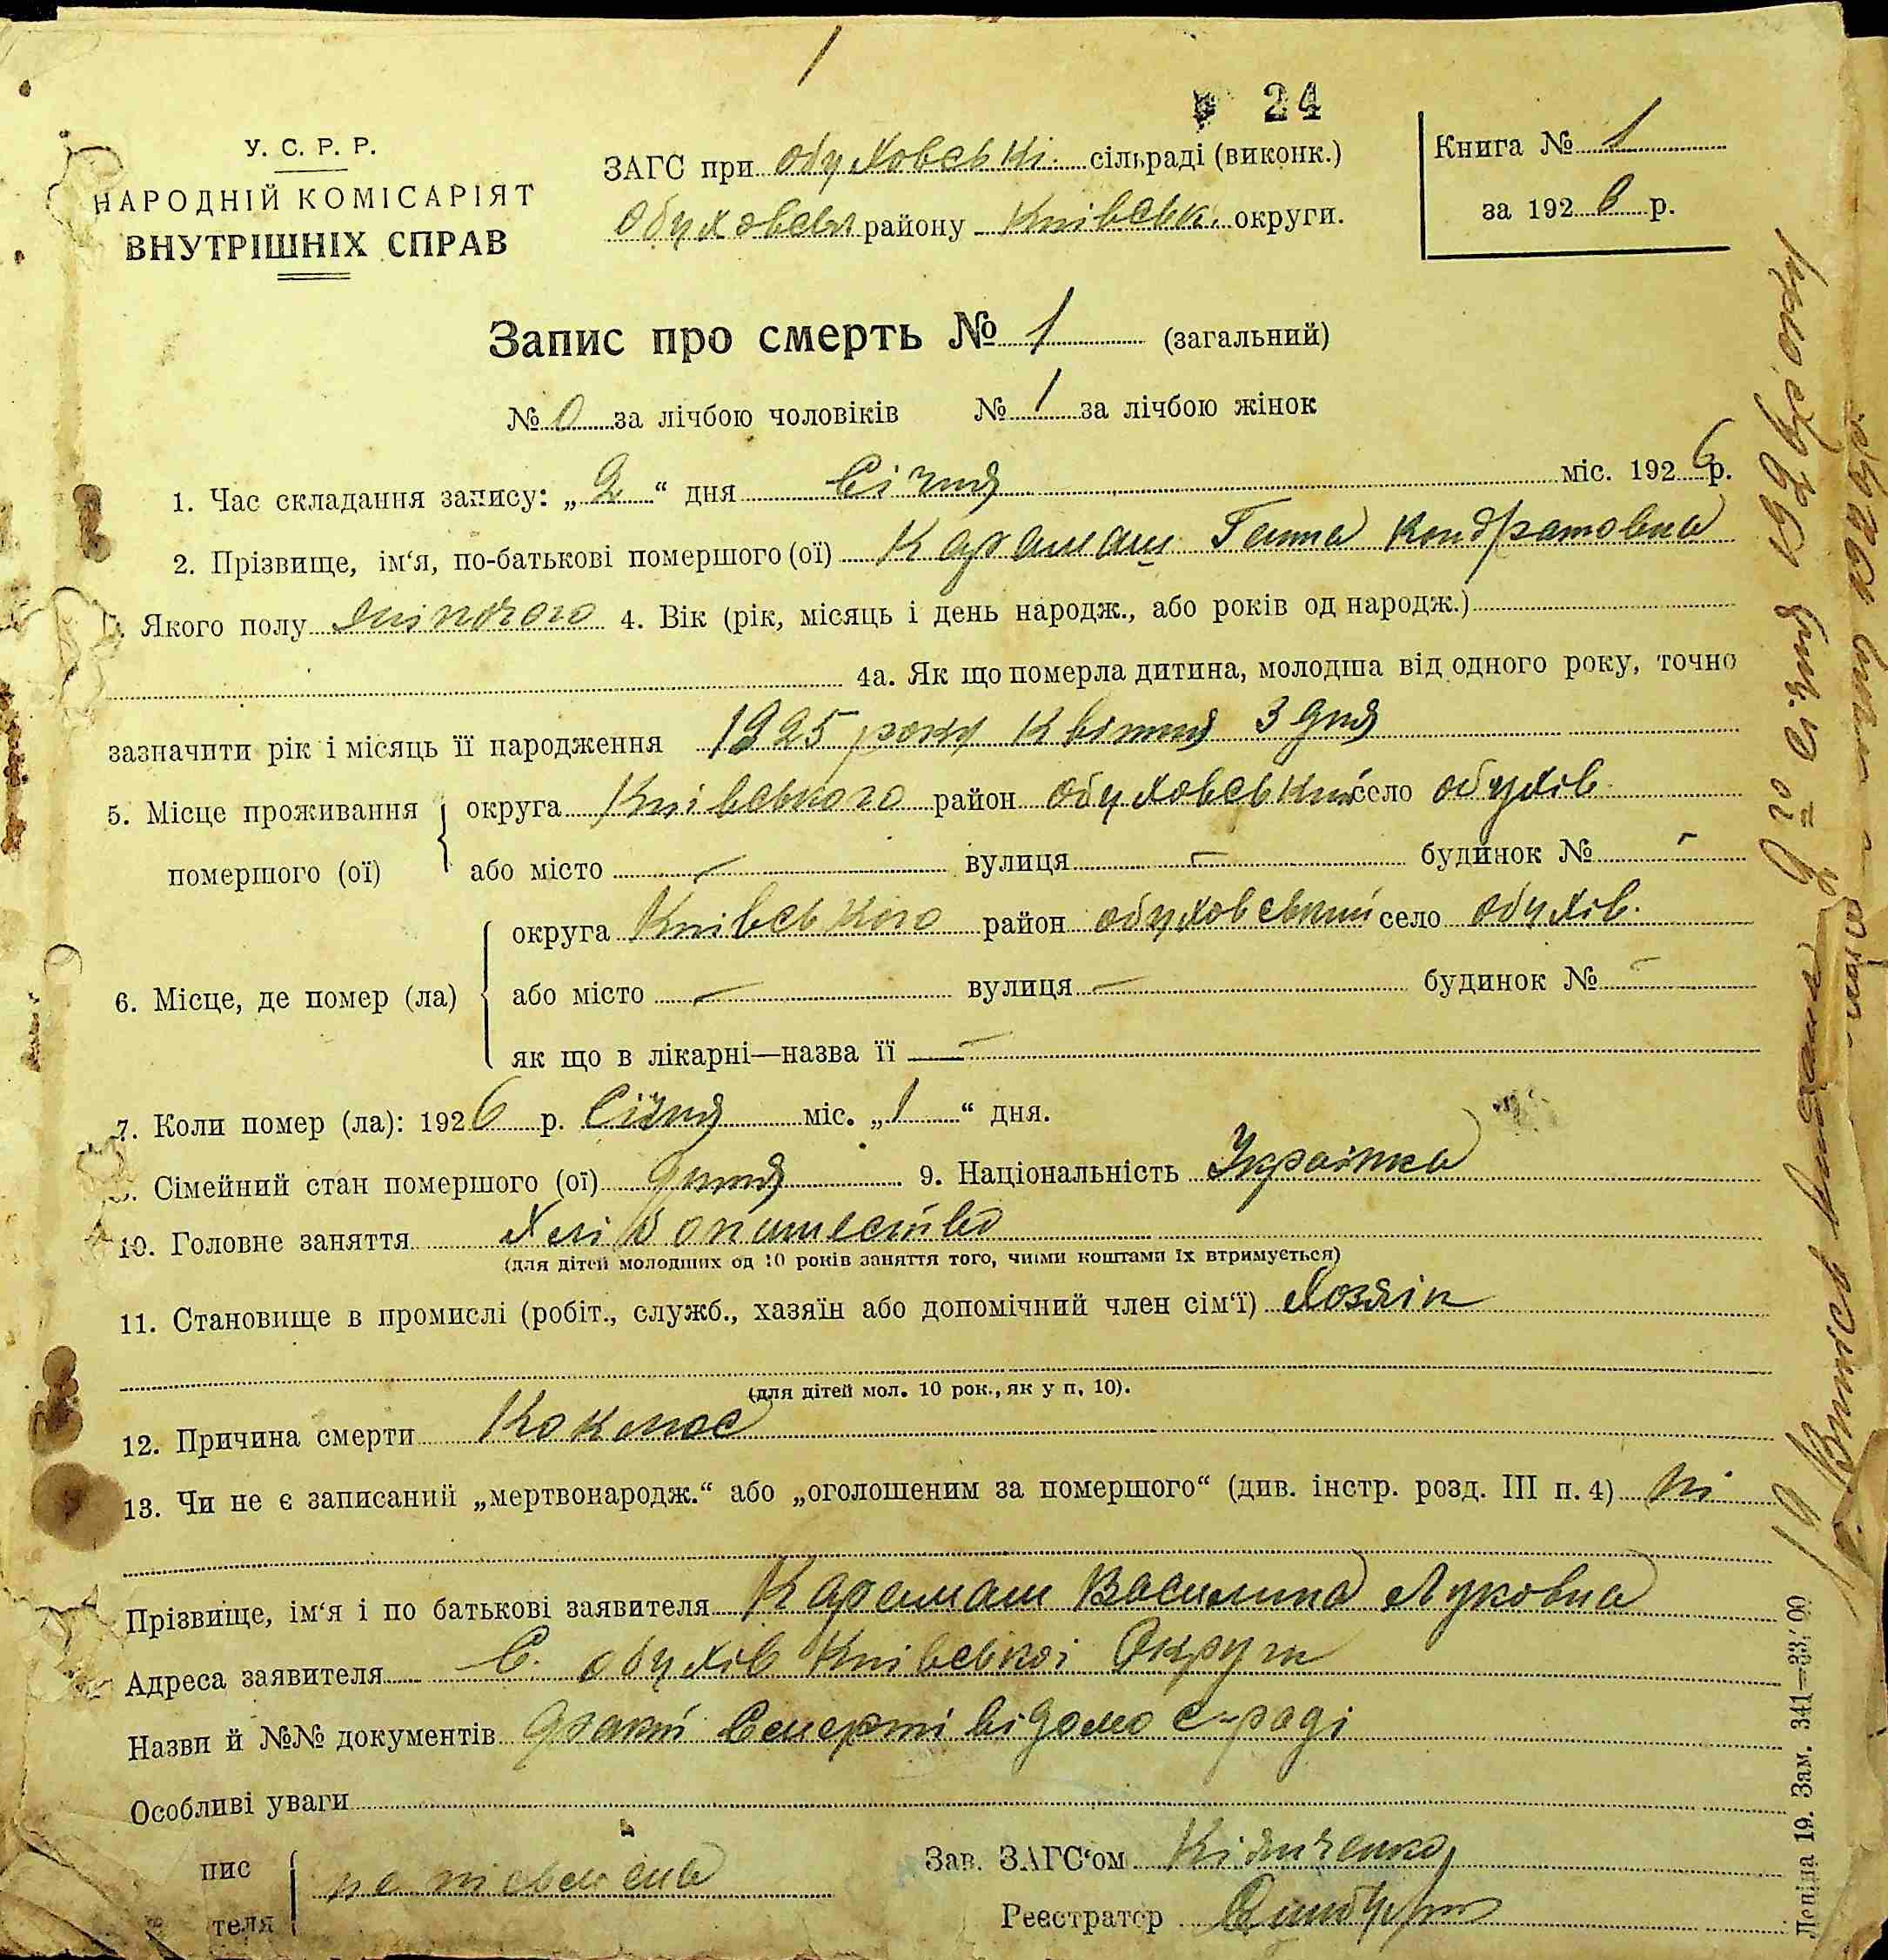 1
24
У. С. Р. Р.
НАРОДНІЙ КОМІСАРІЯТ
ВНУТРІШНІХ СПРАВ
ЗАГС при Обуховські. сільраді (виконк.)
Обуховськ району Киівськ. округи.
Книга № 1
за 1926 р.
Запис про смерть № 1 (загальний)
№ 0 за лічбою чоловіків № 1 за лічбою жінок
1. Час складання запису: „2“ дня Січня міс. 1926 р.
2. Прізвище, ім‘я, по-батькові помершого (ої) Карамаш Ганна Кондратовна
Якого полу жіночого 4. Вік (рік, місяць і день народж., або років од народж.)
4а. Як що померла дитина, молодша від одного року, точно
зазначити рік і місяць її народження 1925 року Квітня 3 дня
5. Місце проживання помершого (ої)
округа Киівського район Обуховський село Обухів
або місто — вулиця — будинок № —
6. Місце, де помер (ла)
округа Киівського район Обуховський село Обухів.
або місто — вулиця — будинок № —
як що в лікарні—назва її —
7. Коли помер (ла): 1926 р. Січня міс. „1“ дня.
Сімейний стан помершого (ої) дитя 9. Національність Українка
10. Головне заняття Хлібопашество
(для дітей молодших од 10 років заняття того, чиїми коштами їх втримується)
11. Становище в промислі (робіт., служб., хазяїн або допомічний член сім‘ї) Хозяін
(для дітей мол. 10 рок., як у п. 10).
12. Причина смерти Коклюс
13. Чи не є записаний „мертвонародж.“ або „оголошеним за помершого“ (див. інстр. розд. III п. 4) Ні
Прізвище, ім‘я і по батькові заявителя Карамаш Василина Луковна
Адреса заявителя С. Обухів Киівської Округи
Назви й №№ документів факт Смерті відомо с-раді
Особливі уваги
пис
теля
не письменна
Зав. ЗАГС‘ом
Реєстратор
Леніна 19. Зам. 341—33.‘00
2го Січня 1926 року